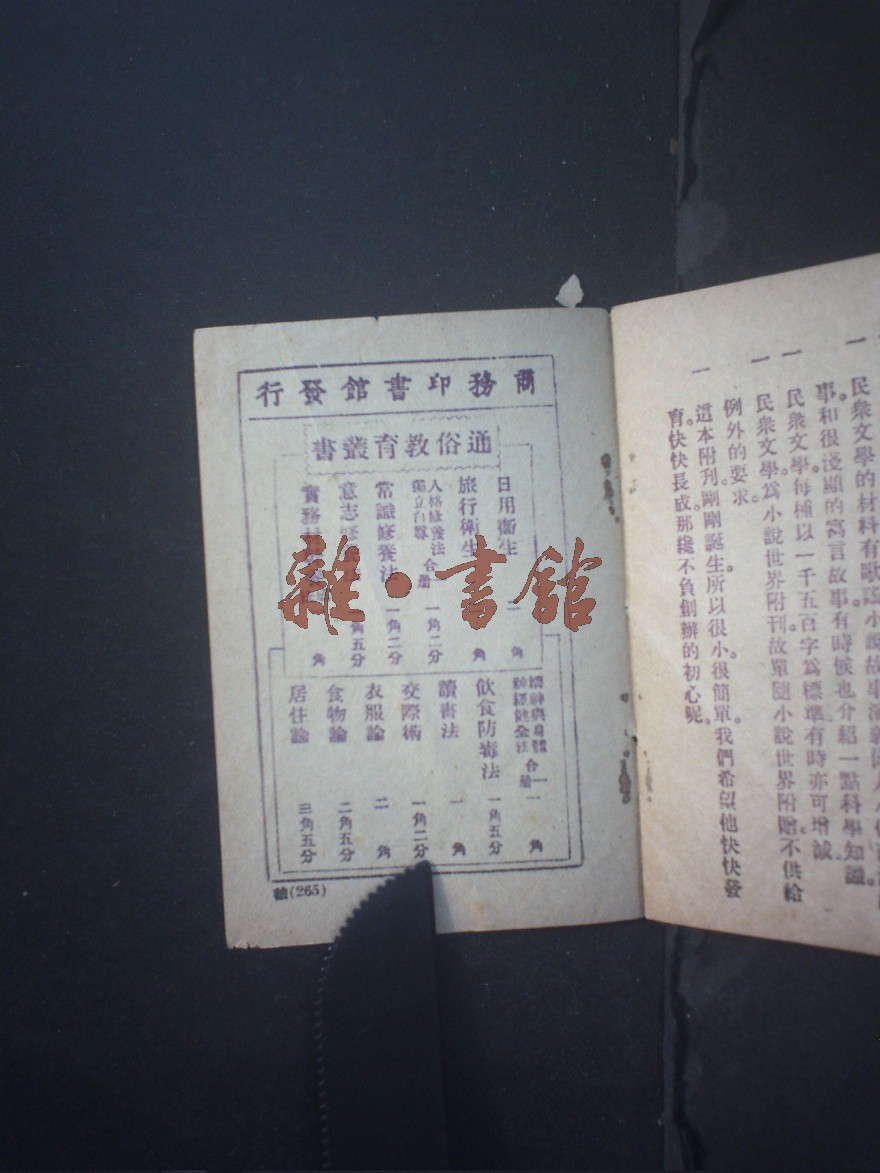 民衆文學的材料有歌謠小說故事
事和很淺顯的寓言故事有時候也介紹一點科學知識。
一 民衆文學每種以一千五百字爲標準有時亦可增減。
一 民衆文學爲小說世界附刊故單隨小說世界附贈不供給
例外的要求。
一 這本附刊剛剛誕生所以很小。很簡單。我們希望他快快發
育。快快長成。那纔不負創辦的初心呢。
商務印書館發行
通俗教育叢書
日用衞生 角
旅行衞生 角
人格修養法
獨立自尊 合册 一角二分
常識修養法 一角二分
意志 角五分
實務 角
精神與身體
神經健全法 合一册 一角
飲食防毒法 一角五分
讀書法 一角
交際術 一角二分
衣服論 二角
食物論 二角五分
居住論 三角五分
(265)
雜·書館